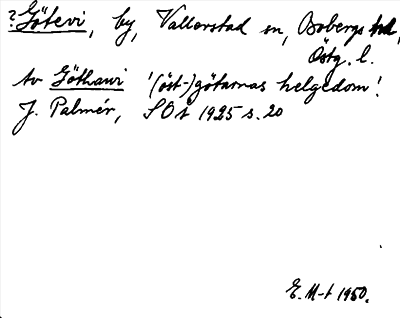 ? Götevi, by, Vallerstad sn, Bobergs hd,
Östg. l.
av Göthawi '(öst-)götarnas helgedom'.
J. Palmér, SOÅ 1925 s. 20
E. M-t 1950.